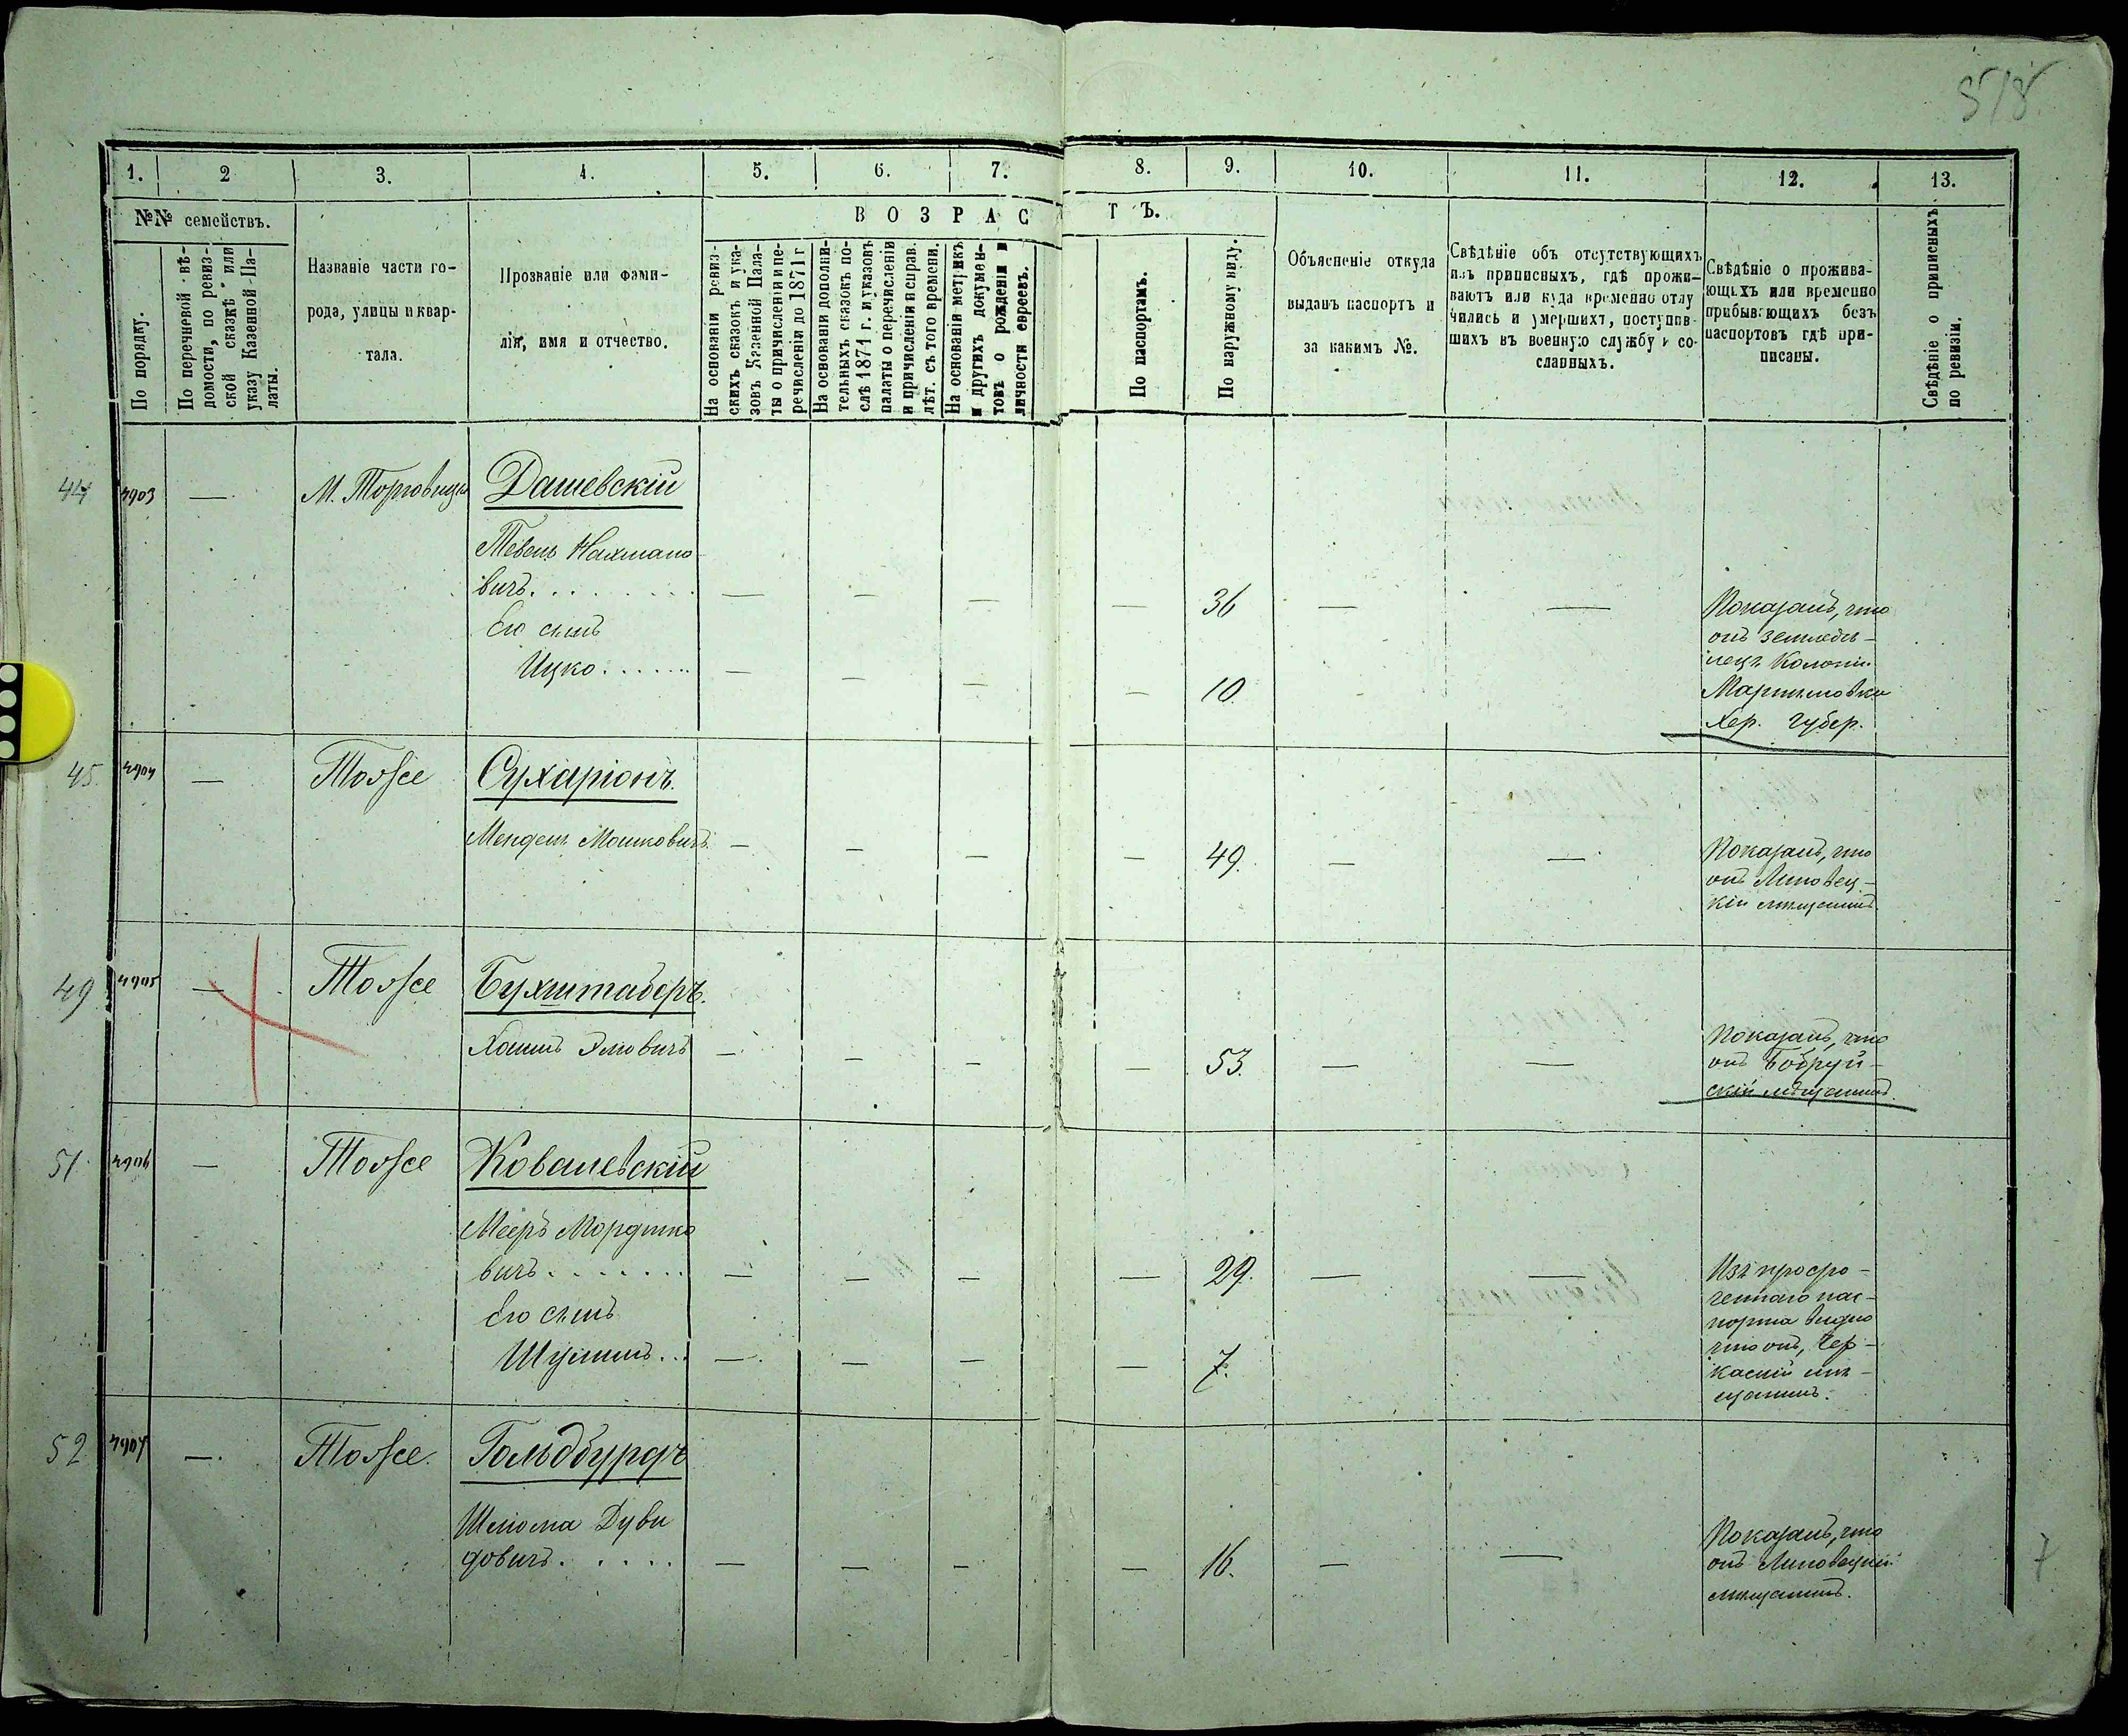 518
1. 2 3. 4. 5. 6. 7. 8. 9. 10. 11. 12. 13.
№№ семействъ.
По порядку.
По перечневой вѣ-
домости, по ревиз-
ской сказкѣ или
указу Казенной Па-
латы.
Названіе части го-
рода, улицы и квар-
тала.
Прозваніе или фами-
лія, имя и отчество.
ВОЗРАСТЪ.
На основаніи ревиз-
скихъ сказокъ и ука-
зовъ Казенной Пала-
ты о причисленіи и пе-
речисленіи до 1871 г
На основаніи дополни-
тельныхъ сказокъ по-
слѣ 1871 г. и указовъ
палаты о перечисленіи
и причисленіи исправ.
лѣт. съ того времени.
На основаніи метрикъ
и другихъ докумен-
товъ о рожденіи и
личности евреевъ.
По паспортамъ.
По наружному виду.
Объясненіе откуда
выданъ паспортъ и
за какимъ №.
Свѣдѣніе объ отсутствующихъ
изъ приписныхъ, гдѣ прожи-
ваютъ или куда временно отлу
чились и умершихъ, поступив-
шихъ въ военную службу и со-
сланныхъ.
Свѣдѣніе о прожива-
ющихъ или временно
прибывающихъ безъ
паспортовъ гдѣ при-
писаны.
Свѣдѣніе о приписныхъ
по ревизіи.
44 4903 — М. Торговица Дашевскій
Тевель Нахмано
вичъ. . . . . . . — — — — 36 — — Показалъ, что
онъ земледѣ-
Его сынъ
лецъ Колоніи
Ицко. . . . . . . — — — — 10. Мартыновки
Хер. губер.
45. 4904 — Тоже Сухаріонъ.
Мендель Мошковичъ. — — — — 49. — — Показалъ, что
онъ Липовец-
кій мѣщанинъ.
49 4905 — Тоже Бухштаберъ.
Хаимъ Элювичъ — — — — 53. — — Показалъ, что
онъ Бобруй-
скій мѣщанинъ.
51. 4906 — Тоже Ковалевскій
Мееръ Мордико
вичъ. . . . . . . — — — — 29. — — Изъ просро-
ченнаго пас-
Его сынъ
порта видно
что онъ, Чер-
Шулимъ. . . — — — — 7. каскій мѣ-
щанинъ.
52 4907 — Тоже. Гольдбурдъ
Шлиома Дуви
довичъ. . . . . — — — — 16. — — Показалъ, что
онъ Липовецкій
мѣщанинъ.
7